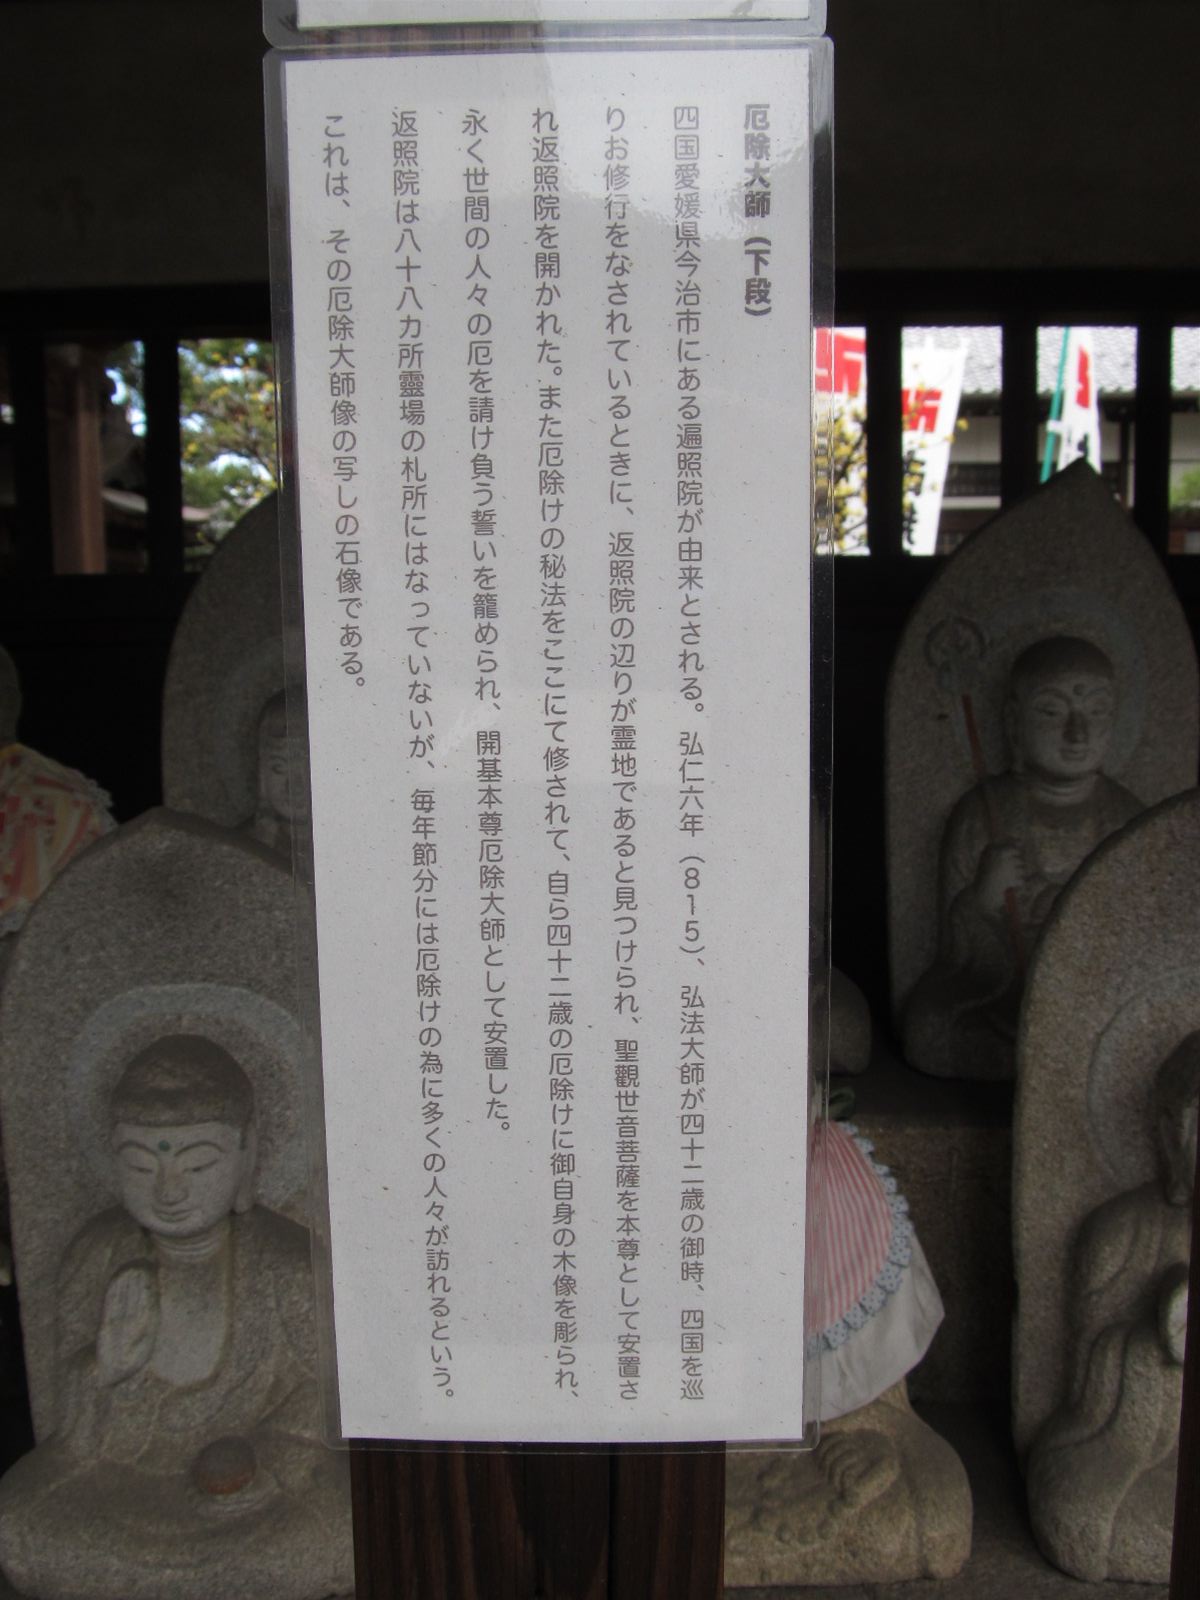 厄除大師（下段）
四国愛媛県今治市にある遍照院が由来とされる。弘仁六年（815）、弘法大師が四十二歳の御時、四国を巡
りお修行をなされているときに、返照院の辺りが霊地であると見つけられ、聖觀世音菩薩を本尊として安置さ
れ返照院を開かれた。また厄除けの秘法をここにて修されて、自ら四十二歳の厄除けに御自身の木像を彫られ、
永く世間の人々の厄を請け負う誓いを籠められ、開基本尊厄除大師として安置した。
返照院は八十八カ所靈場の札所にはなっていないが、毎年節分には厄除けの為に多くの人々が訪れるという。
これは、その厄除大師像の写しの石像である。